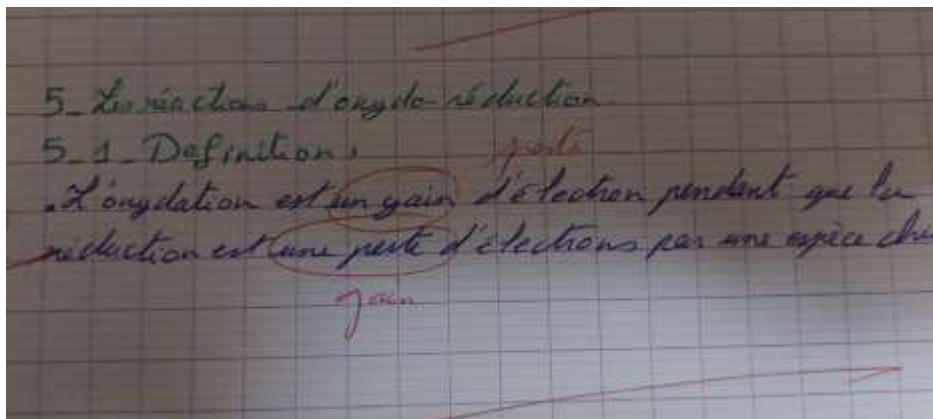 5_ Les réactions d'oxydo-réduction
5_1_ Definitions
perte
. L'oxydation est un gain d'électron pendant que la
réduction est une perte d'électrons par une espèce chi
gain